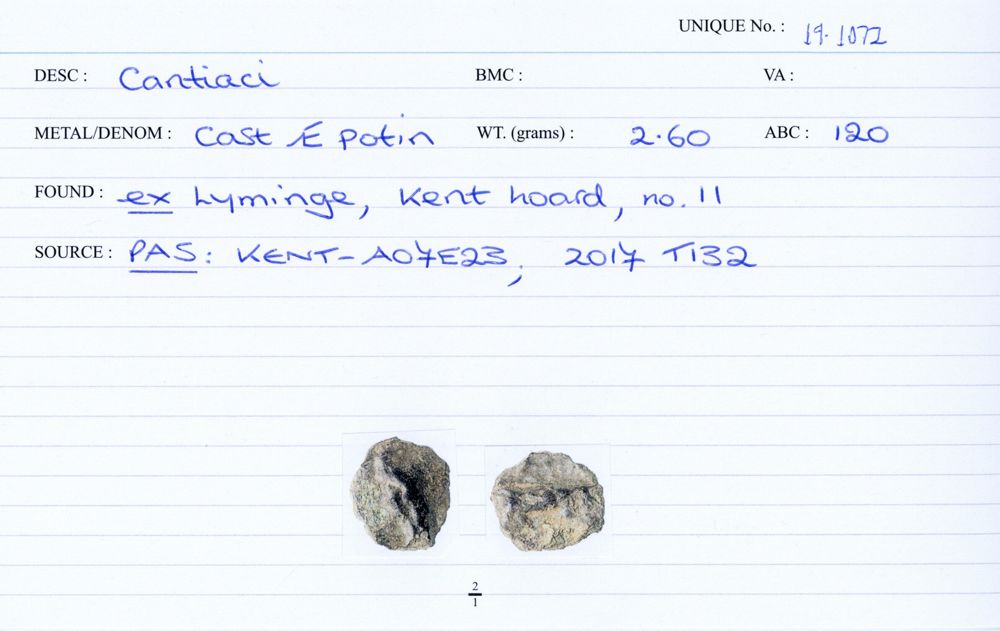 UNIQUE No. : 19.1072
DESC : Cantiaci BMC : VA :
METAL/DENOM : Cast Æ potin WT. (grams) : 2.60 ABC : 120
FOUND : ex Lyminge, Kent hoard, no. 11
SOURCE : PAS: KENT-A07E23, 2017 T132
2
1